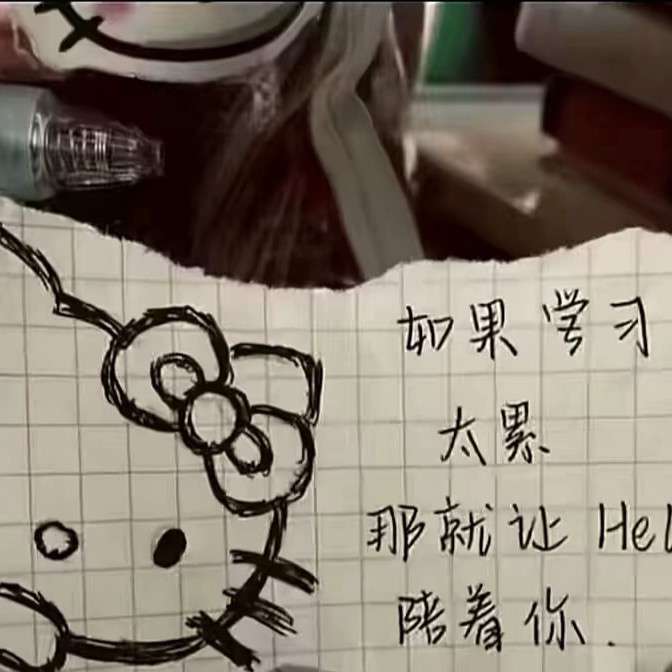 如果学习
太累
那就让 Hel
陪着你.